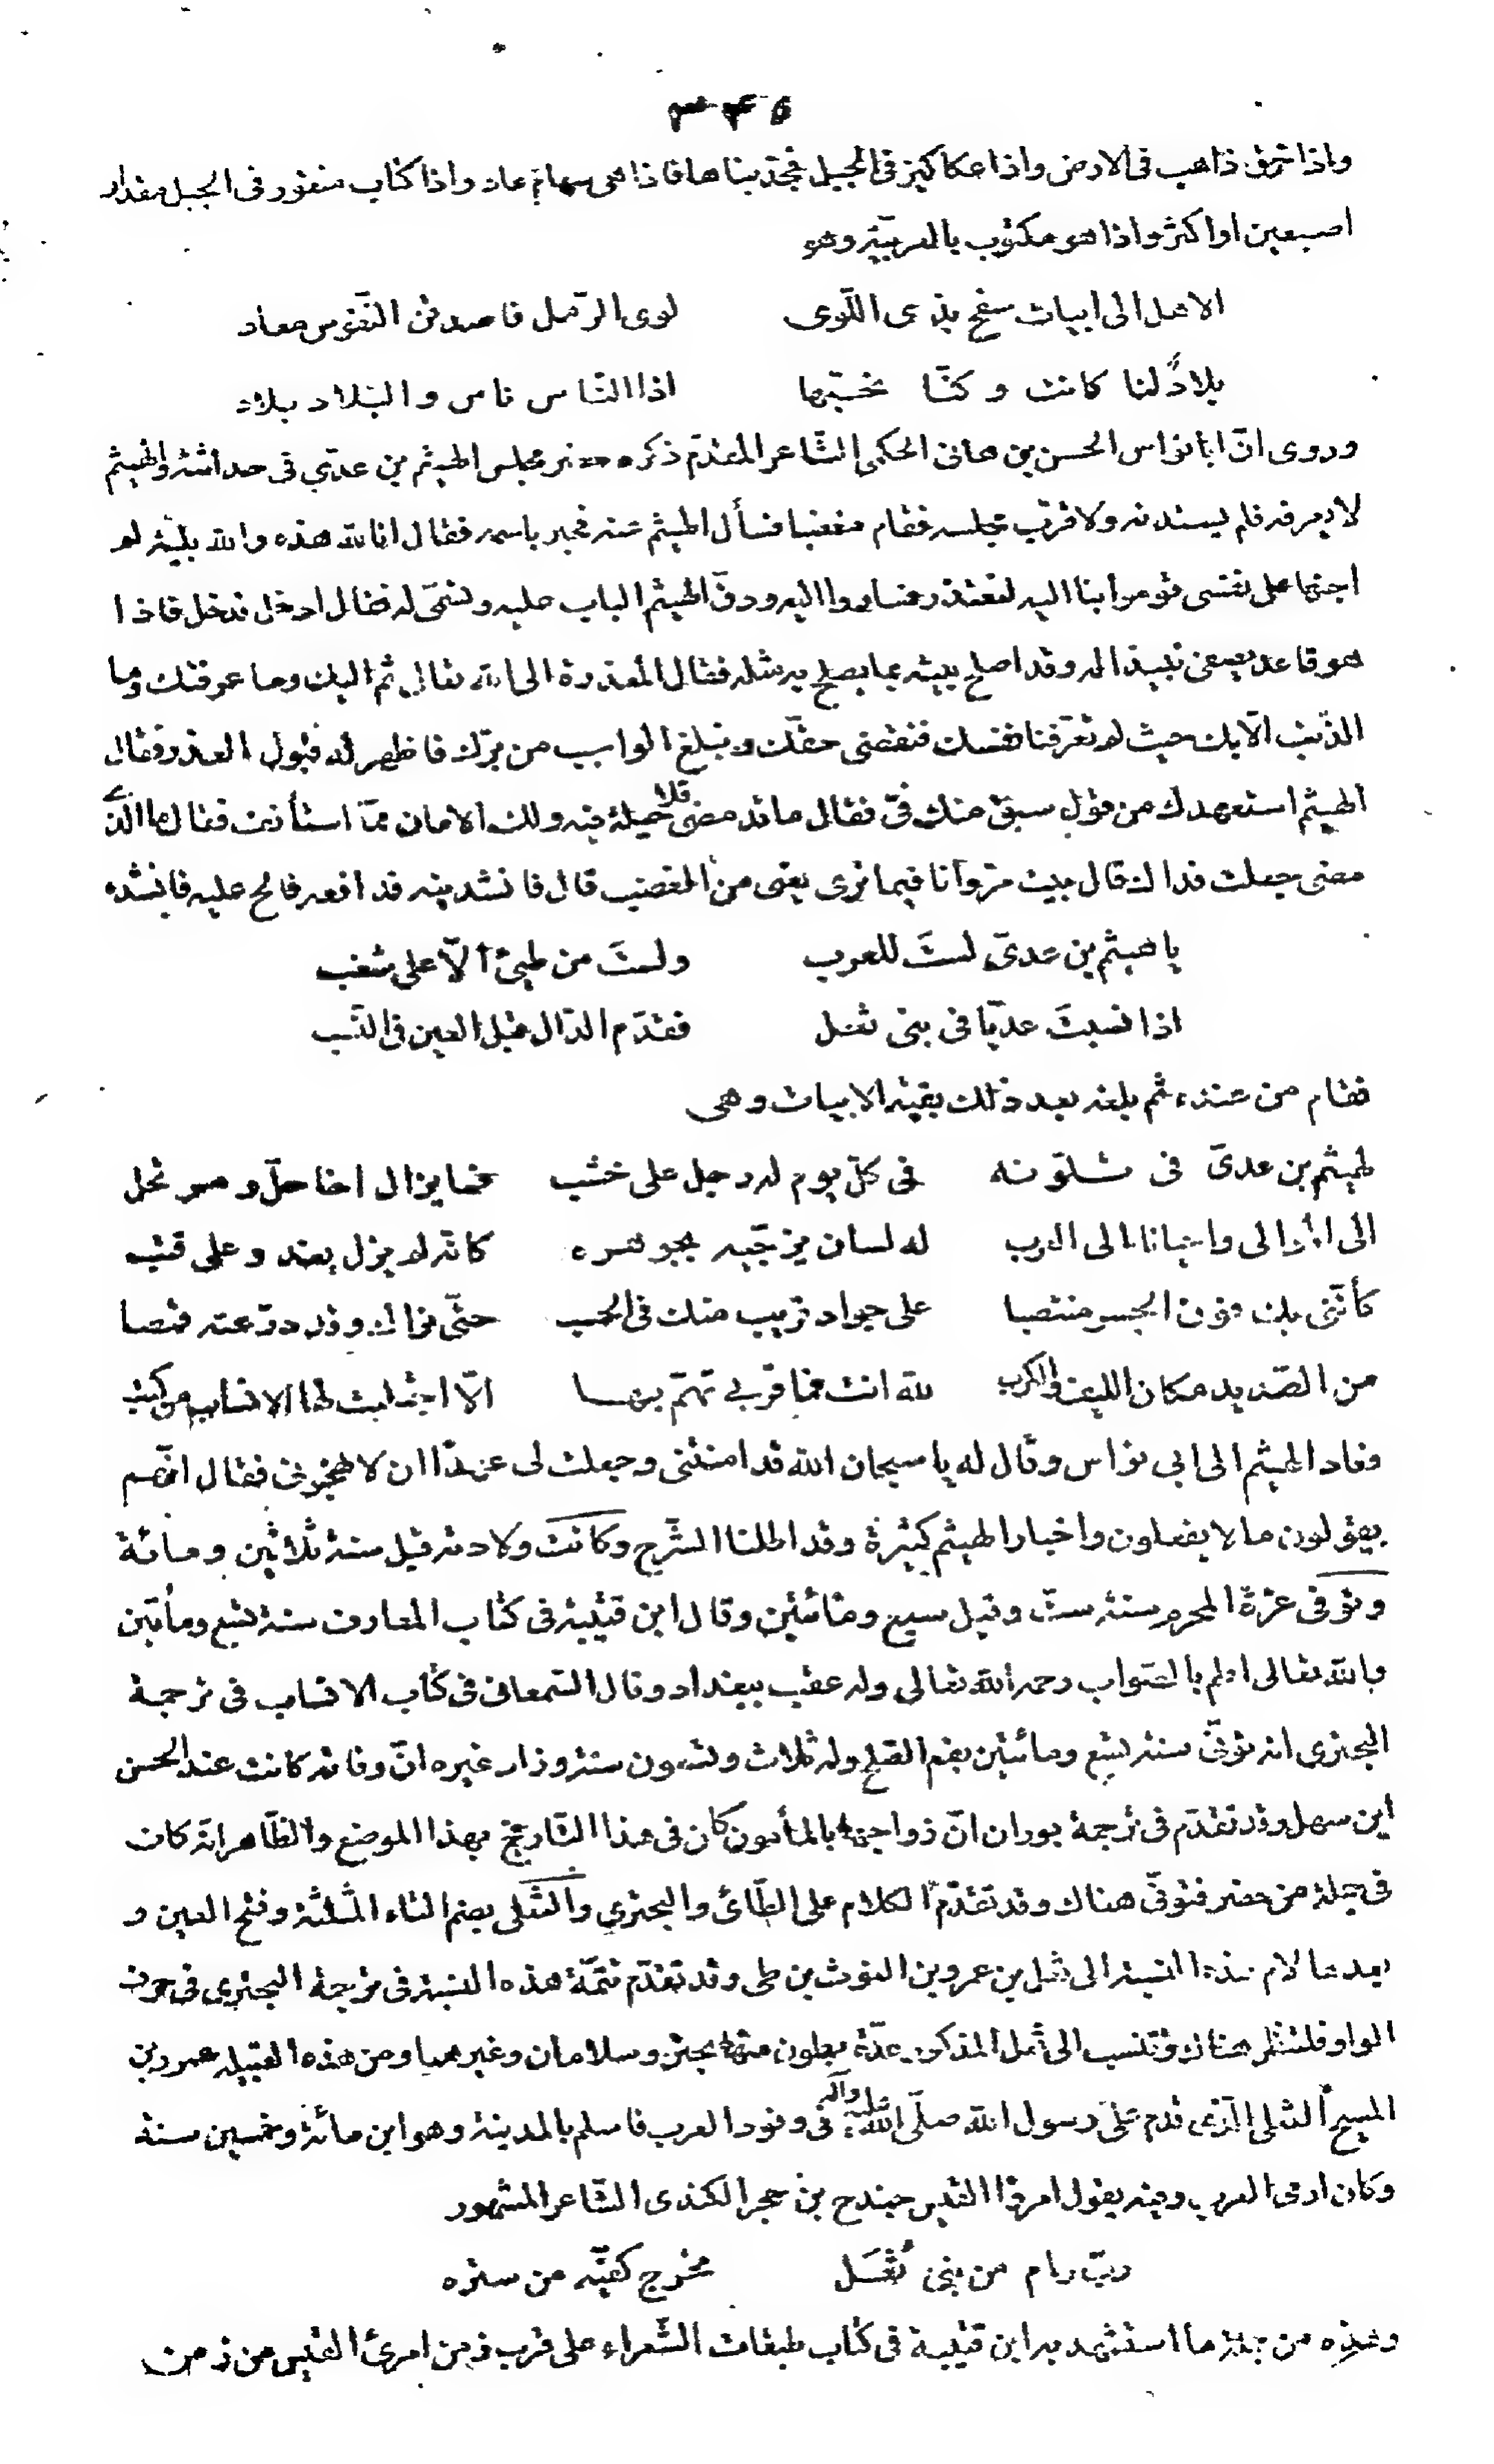 ٣٤٥
واذا خرق ذاهب فى الارض واذا عكاكيز فى الجبل فجذبناها فاذا هى سهام عاد واذا كتاب منقور فى الجبل مقدار
اصبعين او اكثر واذا هو مكتوب بالعربيّة وهو
الا هل الى ابيات سفح بذى اللّوى لوى الرّمل فاصدقن النّفوس معاد
بلادٌ لنا كانت وكنّا نحبّها اذا النّاس ناس والبلاد بلاد
وروى انّ ابا نواس الحسن بن هانى الحكمى الشّاعر المقدّم ذكره حضر مجلس الهيثم بن عدّي فى حداثته والهيثم
لا يعرفه فلم يستدنه ولا قرّب مجلسه فقام مغضبا فسأل الهيثم عنه فخبر باسمه فقال انا لله هذه والله بليّة لم
اجنها على نفسى قوموا بنا اليه لنعتذر فساروا اليه ودقّ الهيثم الباب عليه وتسمّى له فقال ادخل فدخل فاذا
هو قاعد يصفى نبيذا له وقد اصلح بيته بما يصلح به مثله فقال المعذرة الى الله تعالى ثم اليك وما عرفتك وما
الذّنب الّا لك حيث لم تعرّفنا نفسك فنقضى حقّك ونبلغ الواجب من برّك فاظهر له قبول العذر فقال
الهيثم استعهدك من قول سبق منك فىّ فقال ما قد مضى فلا حيلة فيه ولك الامان ممّا استأنف فقال ما الّذى
مضى جعلت فداك قال بيت مرّ وانا فيما ترى يعنى من الغضب قال فانشدنيه فدافعه فالح عليه فانشده
يا هيثم بن عدىّ لستَ للعرب ولستَ من طيئ الّا على شغب
اذا نسبتَ عديّا فى بنى ثعل فقدّم الدّال قبل العين فى النّسب
فقام من عنده ثم بلغه بعد ذلك بقيّة الابيات وهى
لهيثم بن عدىّ فى تلوّنه فى كلّ يوم له رجل على خشب فما يزال اخا حلّ ومرتحل
الى الموالى واحيانا الى العرب له لسان يزجّيه بجوهره كانّه لم يزل يغدو على قتب
كأنّنى بك فوق الجسر منتصبا على جواد قريب منك فى الحسب حتّى نراك وقد درّعته قمصا
من الصّديد مكان اللّيف والكرب لله انت فما قربى تهمّ بها الّا اجتلبت لها الانساب من كثب
وعاد الهيثم الى ابى نواس وقال له يا سبحان الله قد امنتنى وجعلت لى عهدا ان لا تهجونى فقال انّهم
يقولون ما لا يفعلون واخبار الهيثم كثيرة وقد اطلنا الشّرح وكانت ولادته قبل سنة ثلاثين ومائة
وتوفى غرّة المحرم سنة ستّ وقيل سبع ومائتين وقال ابن قتيبة فى كتاب المعارف سنة تسع ومأتين
بالله تعالى اعلم بالصّواب رحمه الله تعالى وله عقب ببغداد وقال السّمعانى فى كتاب الانساب فى ترجمة
البحترى انه توفّى سنة تسع ومائتين بفم الصّلح وله ثلاث وتسعون سنة وزاد غيره انّ وفاته كانت عند الحسن
ابن سهل وقد تقدّم فى ترجمة بوران انّ زواجها بالمأمون كان فى هذا التّاريخ بهذا الموضع والظّاهر انّه كان
فى جملة من حضر فتوفّى هناك وقد تقدّم الكلام على الطّائى والبحتري والثّعلى بضم الثاء المثلثة وفتح العين و
بعدها لام هذه النسبة الى ثعل بن عمرو بن الغوث بن طى وقد تقدّم تتمّة هذه النسبة فى ترجمة البحترى فى حرف
الواو فلتنظر هناك وتنسب الى ثعل المذكور عدّة بطون منها بحتر وسلامان وغيرهما ومن هذه القبيلة عمرو بن
المسيح الثعلى الّذى قدم على رسول الله صلّى الله عليه وآله فى وفود العرب فاسلم بالمدينة وهو ابن مائة وخمسين سنة
وكان ارمى العرب وفيه يقول امرؤ القيس حندج بن حجر الكندى الشّاعر المشهور
ربّ رام من بنى ثُعَل مخرج كفّيه من ستره
وهذه من جملة ما استشهد به ابن قتيبة فى كتاب طبقات الشّعراء على قرب زمن امرئ القيس من زمن